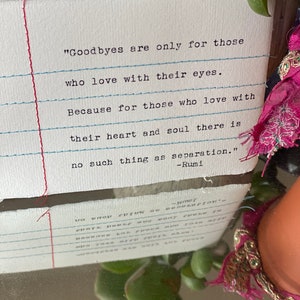 "Goodbyes are only for those
who love with their eyes.
Because for those who love with
their heart and soul there is
no such thing as separation."
-Rumi